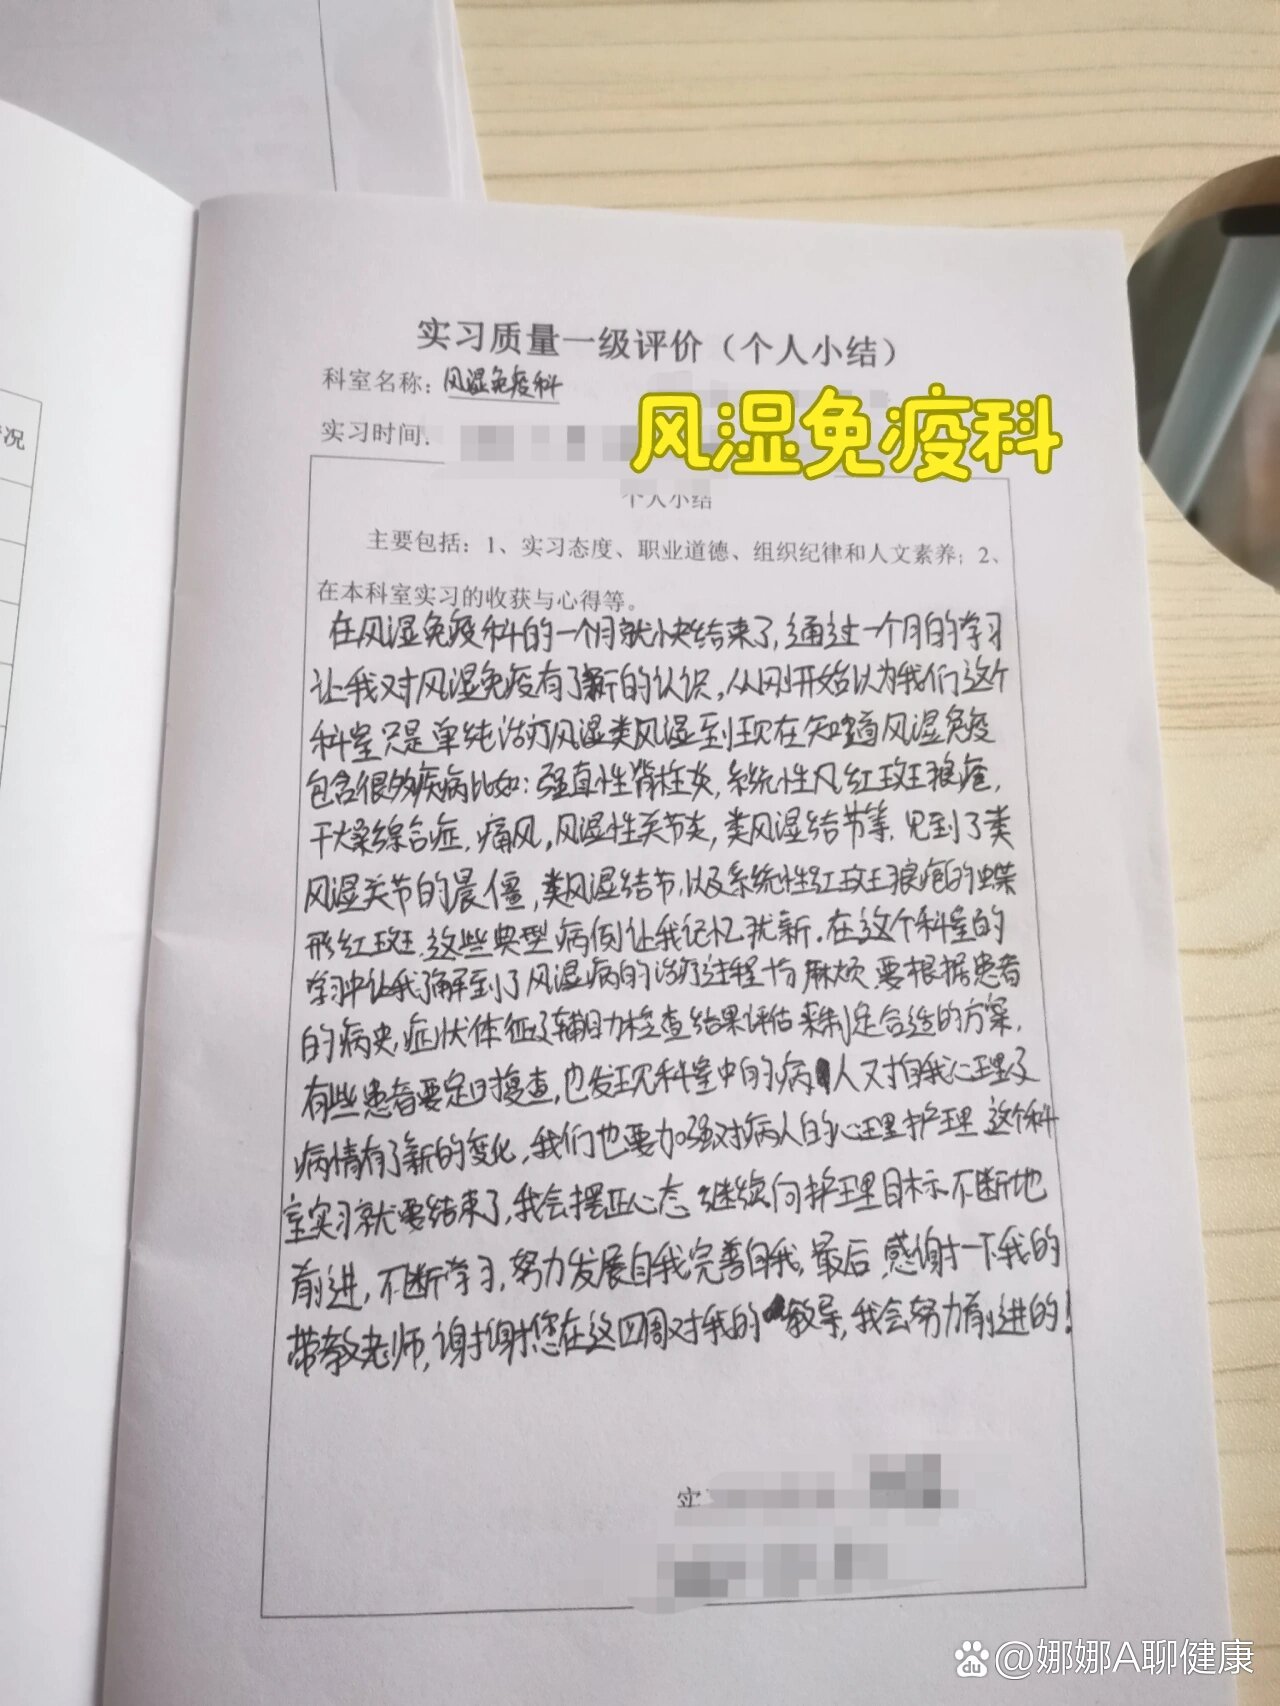 况
实习质量一级评价（个人小结）
科室名称：风湿免疫科
风湿免疫科
实习时间
个人小结
主要包括：1、实习态度、职业道德、组织纪律和人文素养；2、
在本科室实习的收获与心得等。
在风湿免疫科的一个月就快结束了，通过一个月的学习
让我对风湿免疫有了新的认识，从刚开始认为我们这个
科室只是单纯治疗风湿类风湿到现在知道风湿免疫
包含很多疾病比如：强直性脊柱炎，系统性风红斑狼疮，
干燥综合症，痛风，风湿性关节炎，类风湿结节等，见到了类
风湿关节的晨僵，类风湿结节，以及系统性红斑狼疮的蝶
形红斑，这些典型病例让我记忆犹新．在这个科室的
学习中让我了解到了风湿病的治疗过程十分麻烦，要根据患者
的病史，症状体征及辅助检查结果评估来制定合适的方案．
有些患者要定时复查，也发现科室中的病人对自我心理及
病情有了新的变化，我们也要加强对病人的心理护理，这个科
室实习就要结束了，我会摆正心态，继续向护理目标不断地
前进，不断学习，努力发展自我完善自我，最后，感谢一下我的
带教老师，谢谢您在这四周对我的教导，我会努力前进的！
实
Bai du @娜娜A聊健康